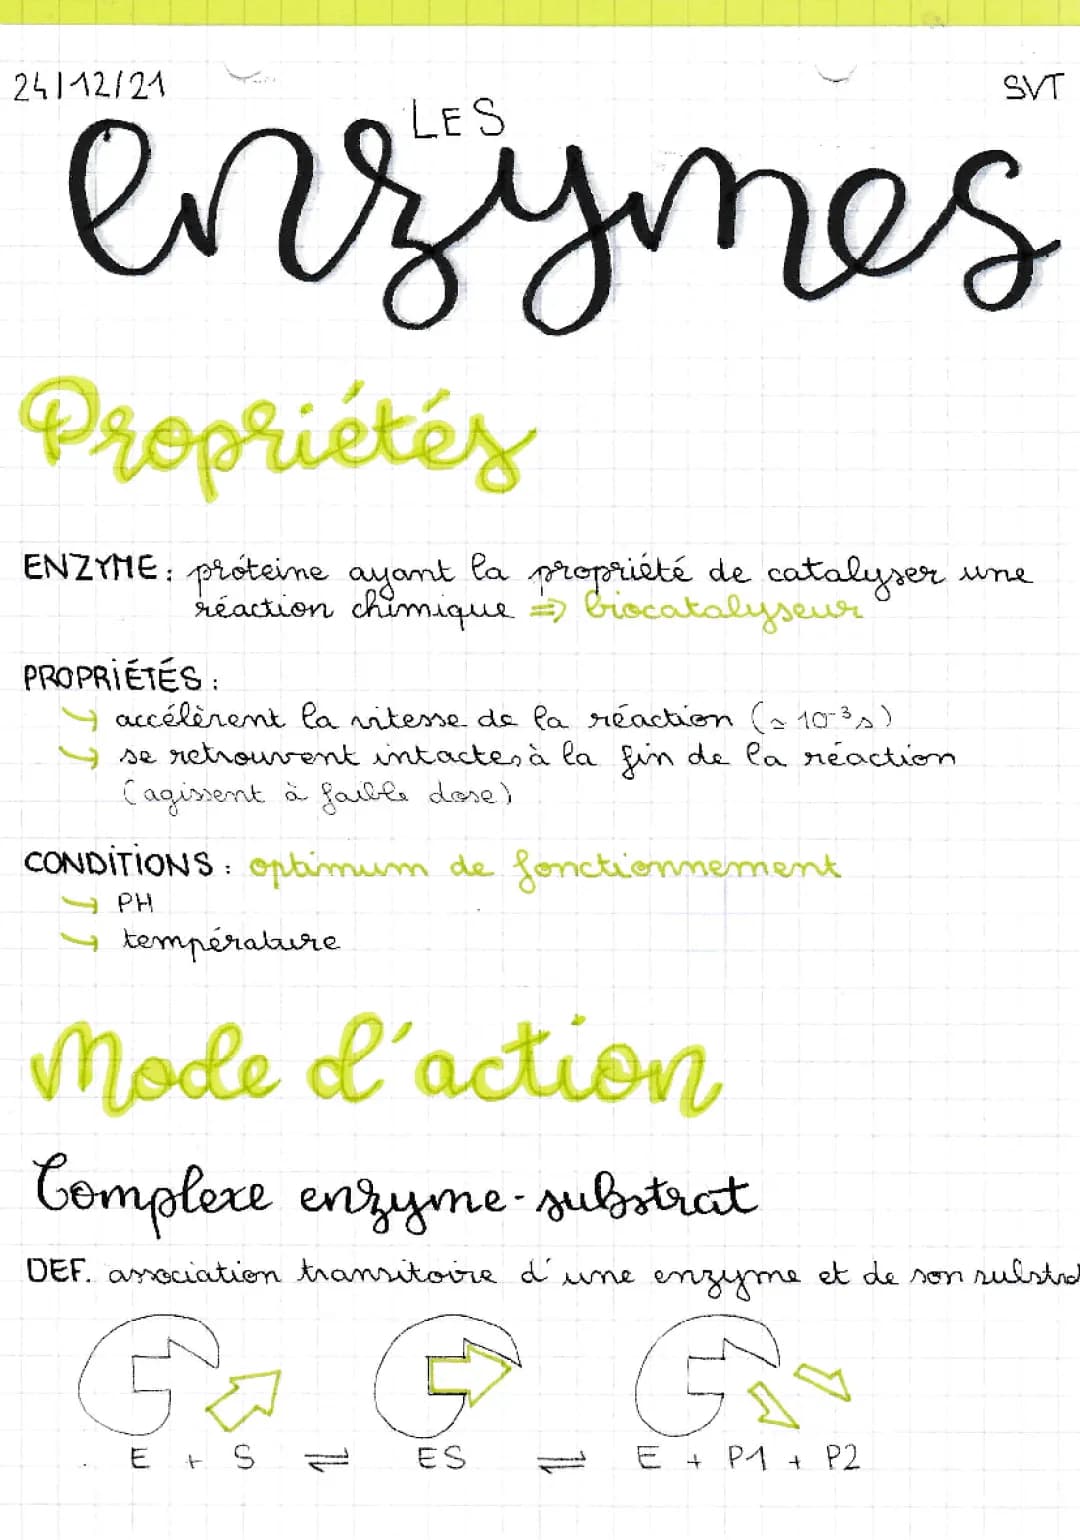 24/12/21
SVT
LES
enzymes
Propriétés
ENZYME : próteine ayant la propriété de catalyser une
réaction chimique => biocatalyseur
PROPRIÉTÉS :
↪ accélèrent la vitesse de la réaction (≃ 10⁻³s)
↪ se retrouvent intactes à la fin de la réaction
(agissent à faible dose)
CONDITIONS : optimum de fonctionnement
↪ PH
↪ température
Mode d'action
Complexe enzyme-substrat
DEF. association transitoire d'une enzyme et de son substrat
E + S ⇌ ES ⇌ E + P1 + P2